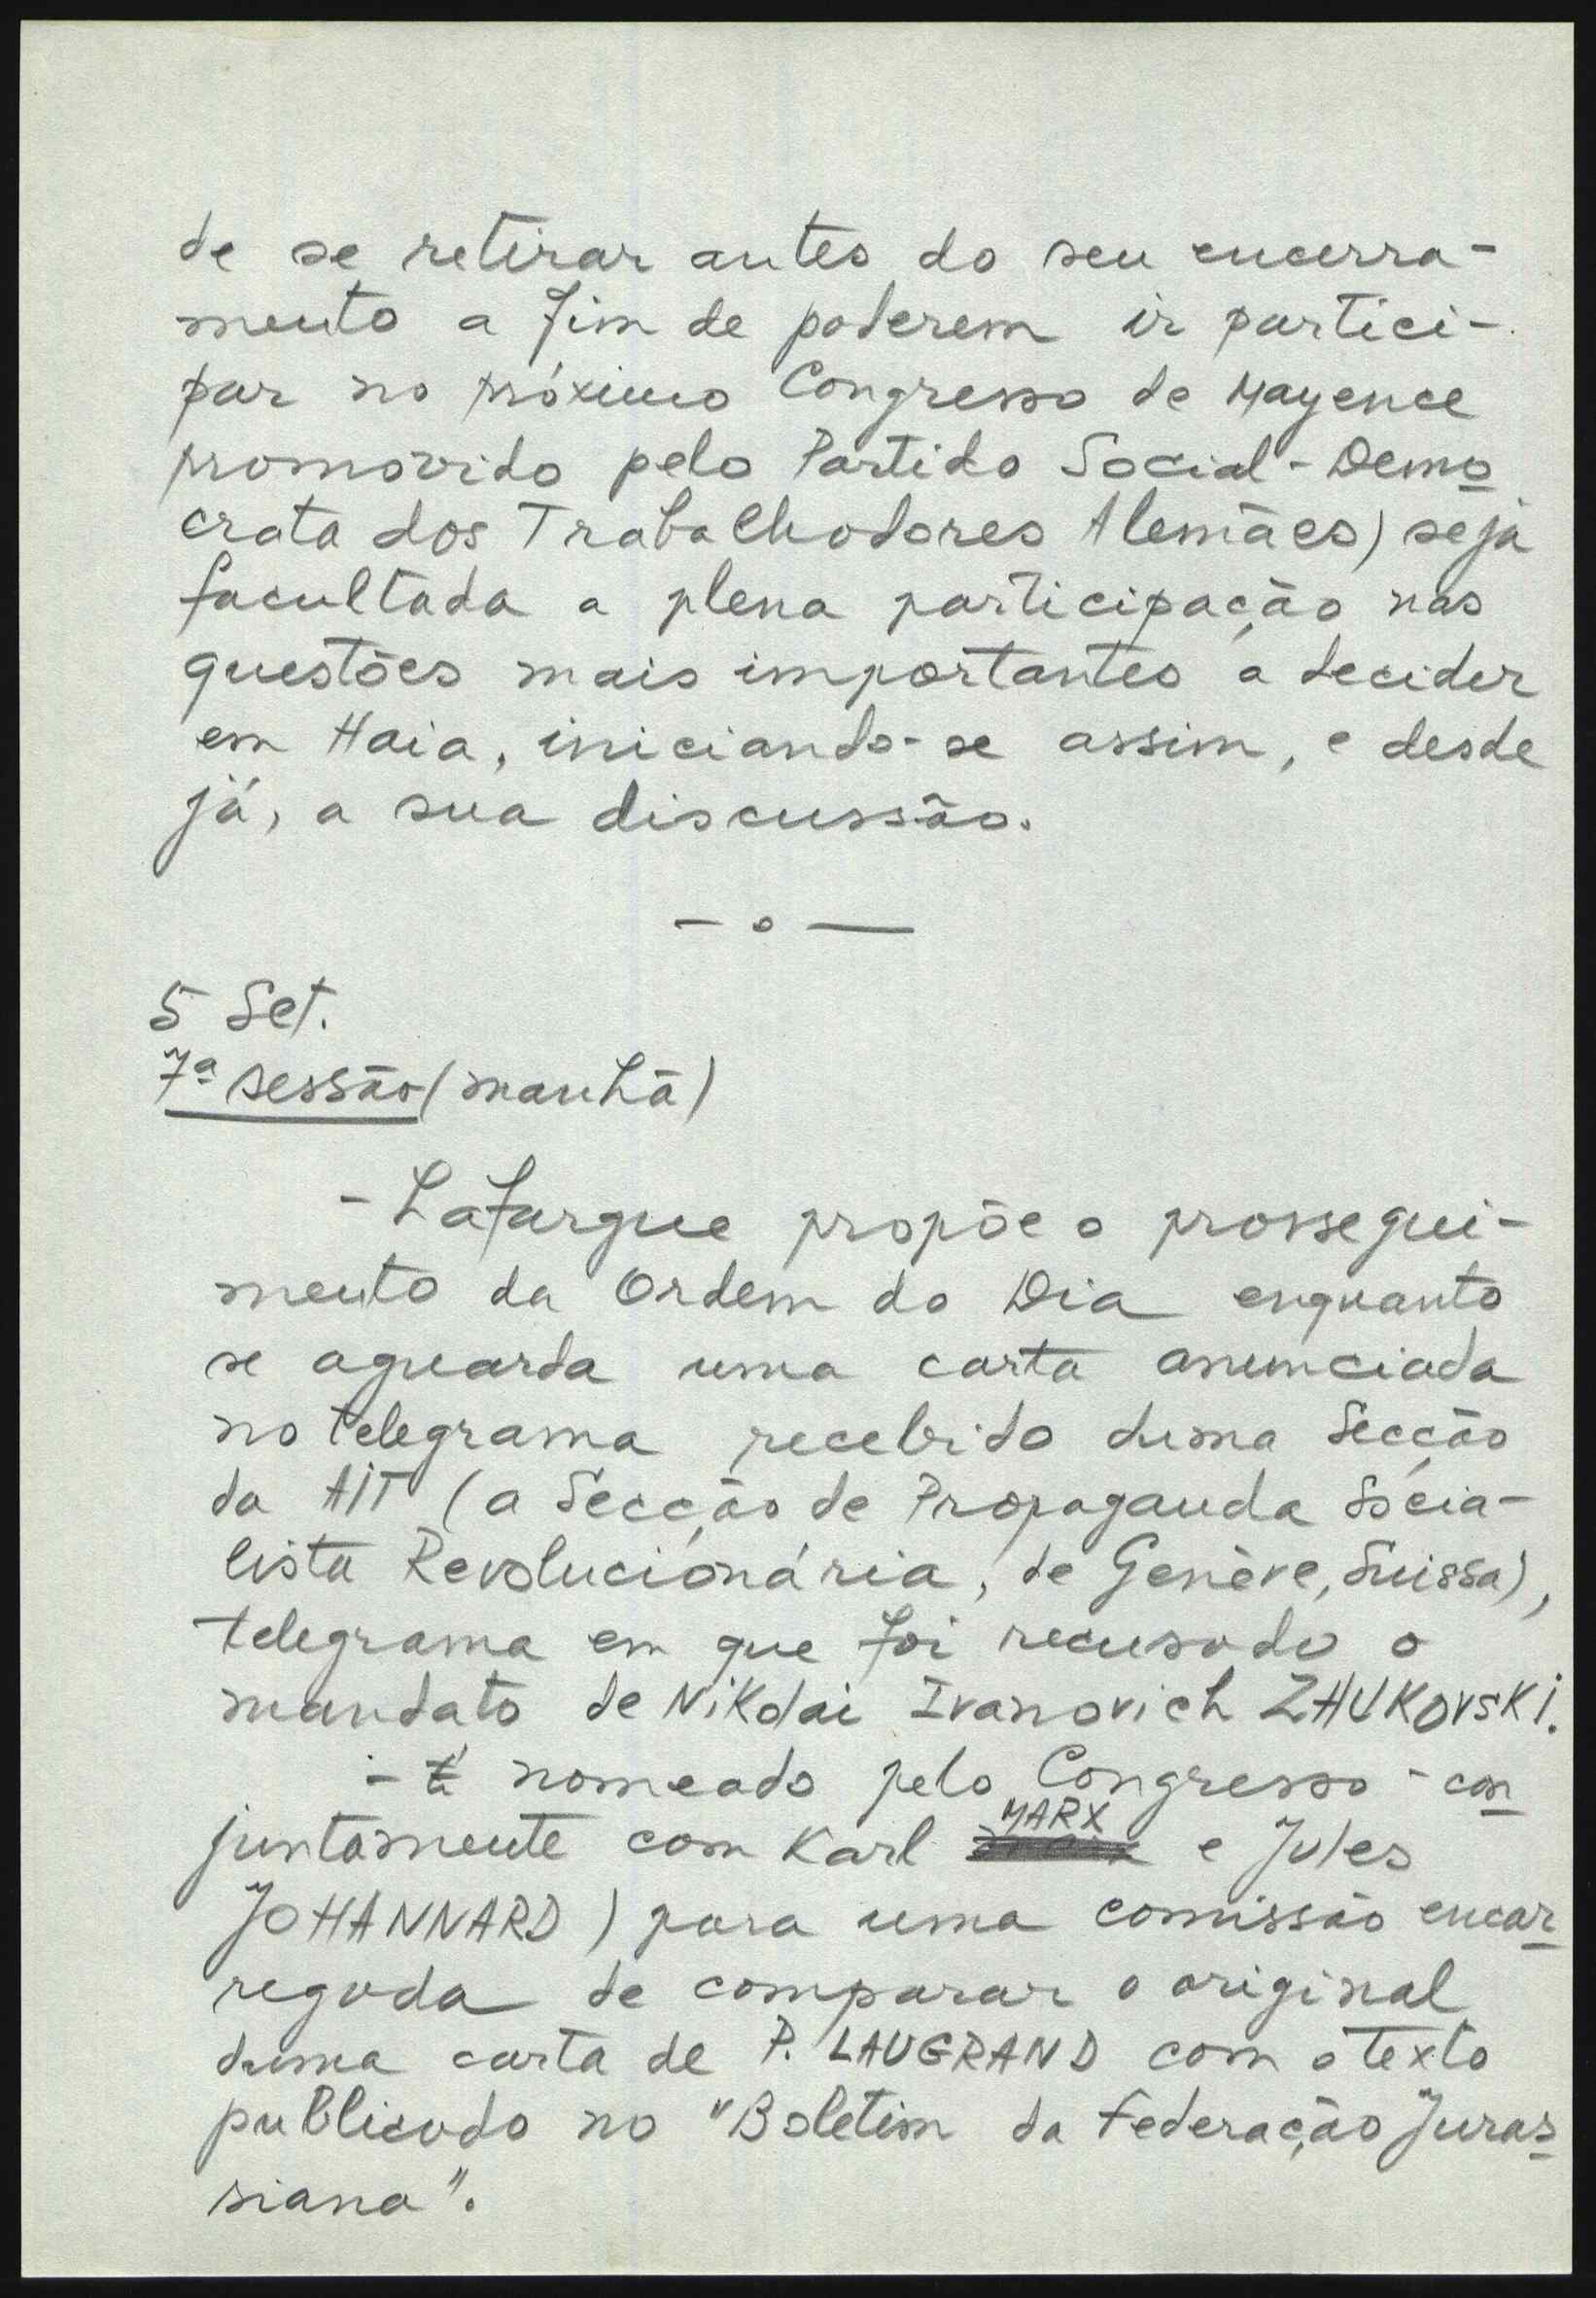 de se retirar antes do seu encerra-
mento a fim de poderem ir partici-
par no próximo Congresso de Mayence
promovido pelo Partido Social-Demo
crata dos Trabalhadores Alemães) seja
facultada a plena participação nas
questões mais importantes a decidir
em Haia, iniciando-se assim, e desde
já, a sua discussão.
— o —
5 Set.
7ª sessão (manhã)
- Lafargue propõe o prossegui-
mento da Ordem do Dia enquanto
se aguarda uma carta anunciada
no telegrama recebido duma Secção
da AIT (a Secção de Propaganda Socia-
lista Revolucionária, de Genève, Suissa),
telegrama em que foi recusado o
mandato de Nikolai Ivanovich ZHUKOVSKI.
- É nomeado pelo Congresso - con
juntamente com Karl MARX e Jules
JOHANNARD) para uma comissão encar
regada de comparar o original
duma carta de P. LAUGRAND com o texto
publicado no "Boletim da Federação Juras
siana".